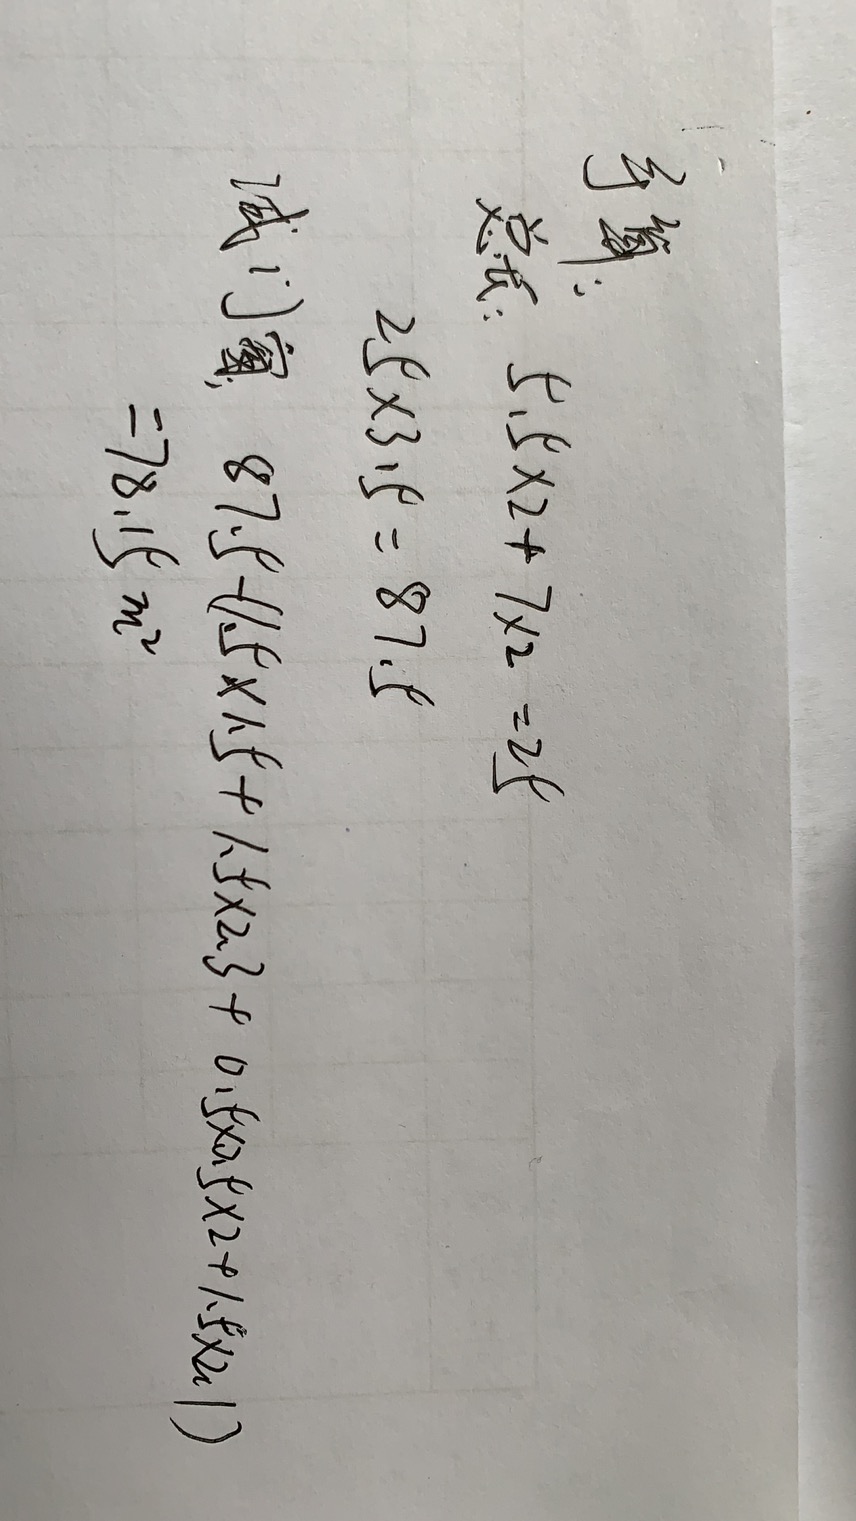 手算:
总长: 5.5×2+7×2=25
25×3.5=87.5
减门窗: 87.5-(1.5×1.5+1.5×2.3+0.5×0.5×2+1.5×2.1)
=78.15m²